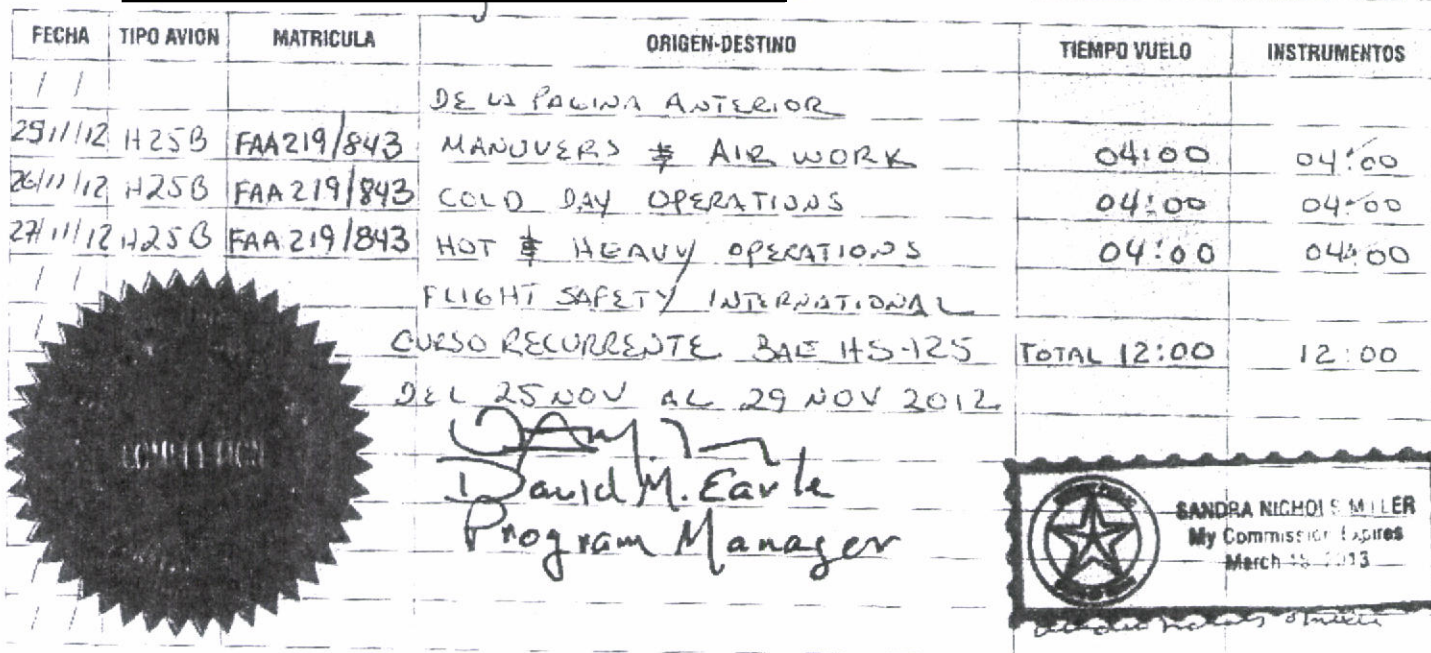 FECHA TIPO AVION MATRICULA ORIGEN-DESTINO TIEMPO VUELO INSTRUMENTOS
/ / DE LA PAGINA ANTERIOR
25/11/12 H25B FAA219/843 MANUVERS & AIR WORK 04:00 04:00
26/11/12 H25B FAA219/843 COLD DAY OPERATIONS 04:00 04:00
27/11/12 H25B FAA219/843 HOT & HEAVY OPERATIONS 04:00 04:00
/ / FLIGHT SAFETY INTERNATIONAL
/ CURSO RECURRENTE BAE HS-125 TOTAL 12:00 12:00
DEL 25 NOV AL 29 NOV 2012
David M. Earle
Program Manager
SANDRA NICHOLS MILLER
My Commission Expires
March 2013
/ /